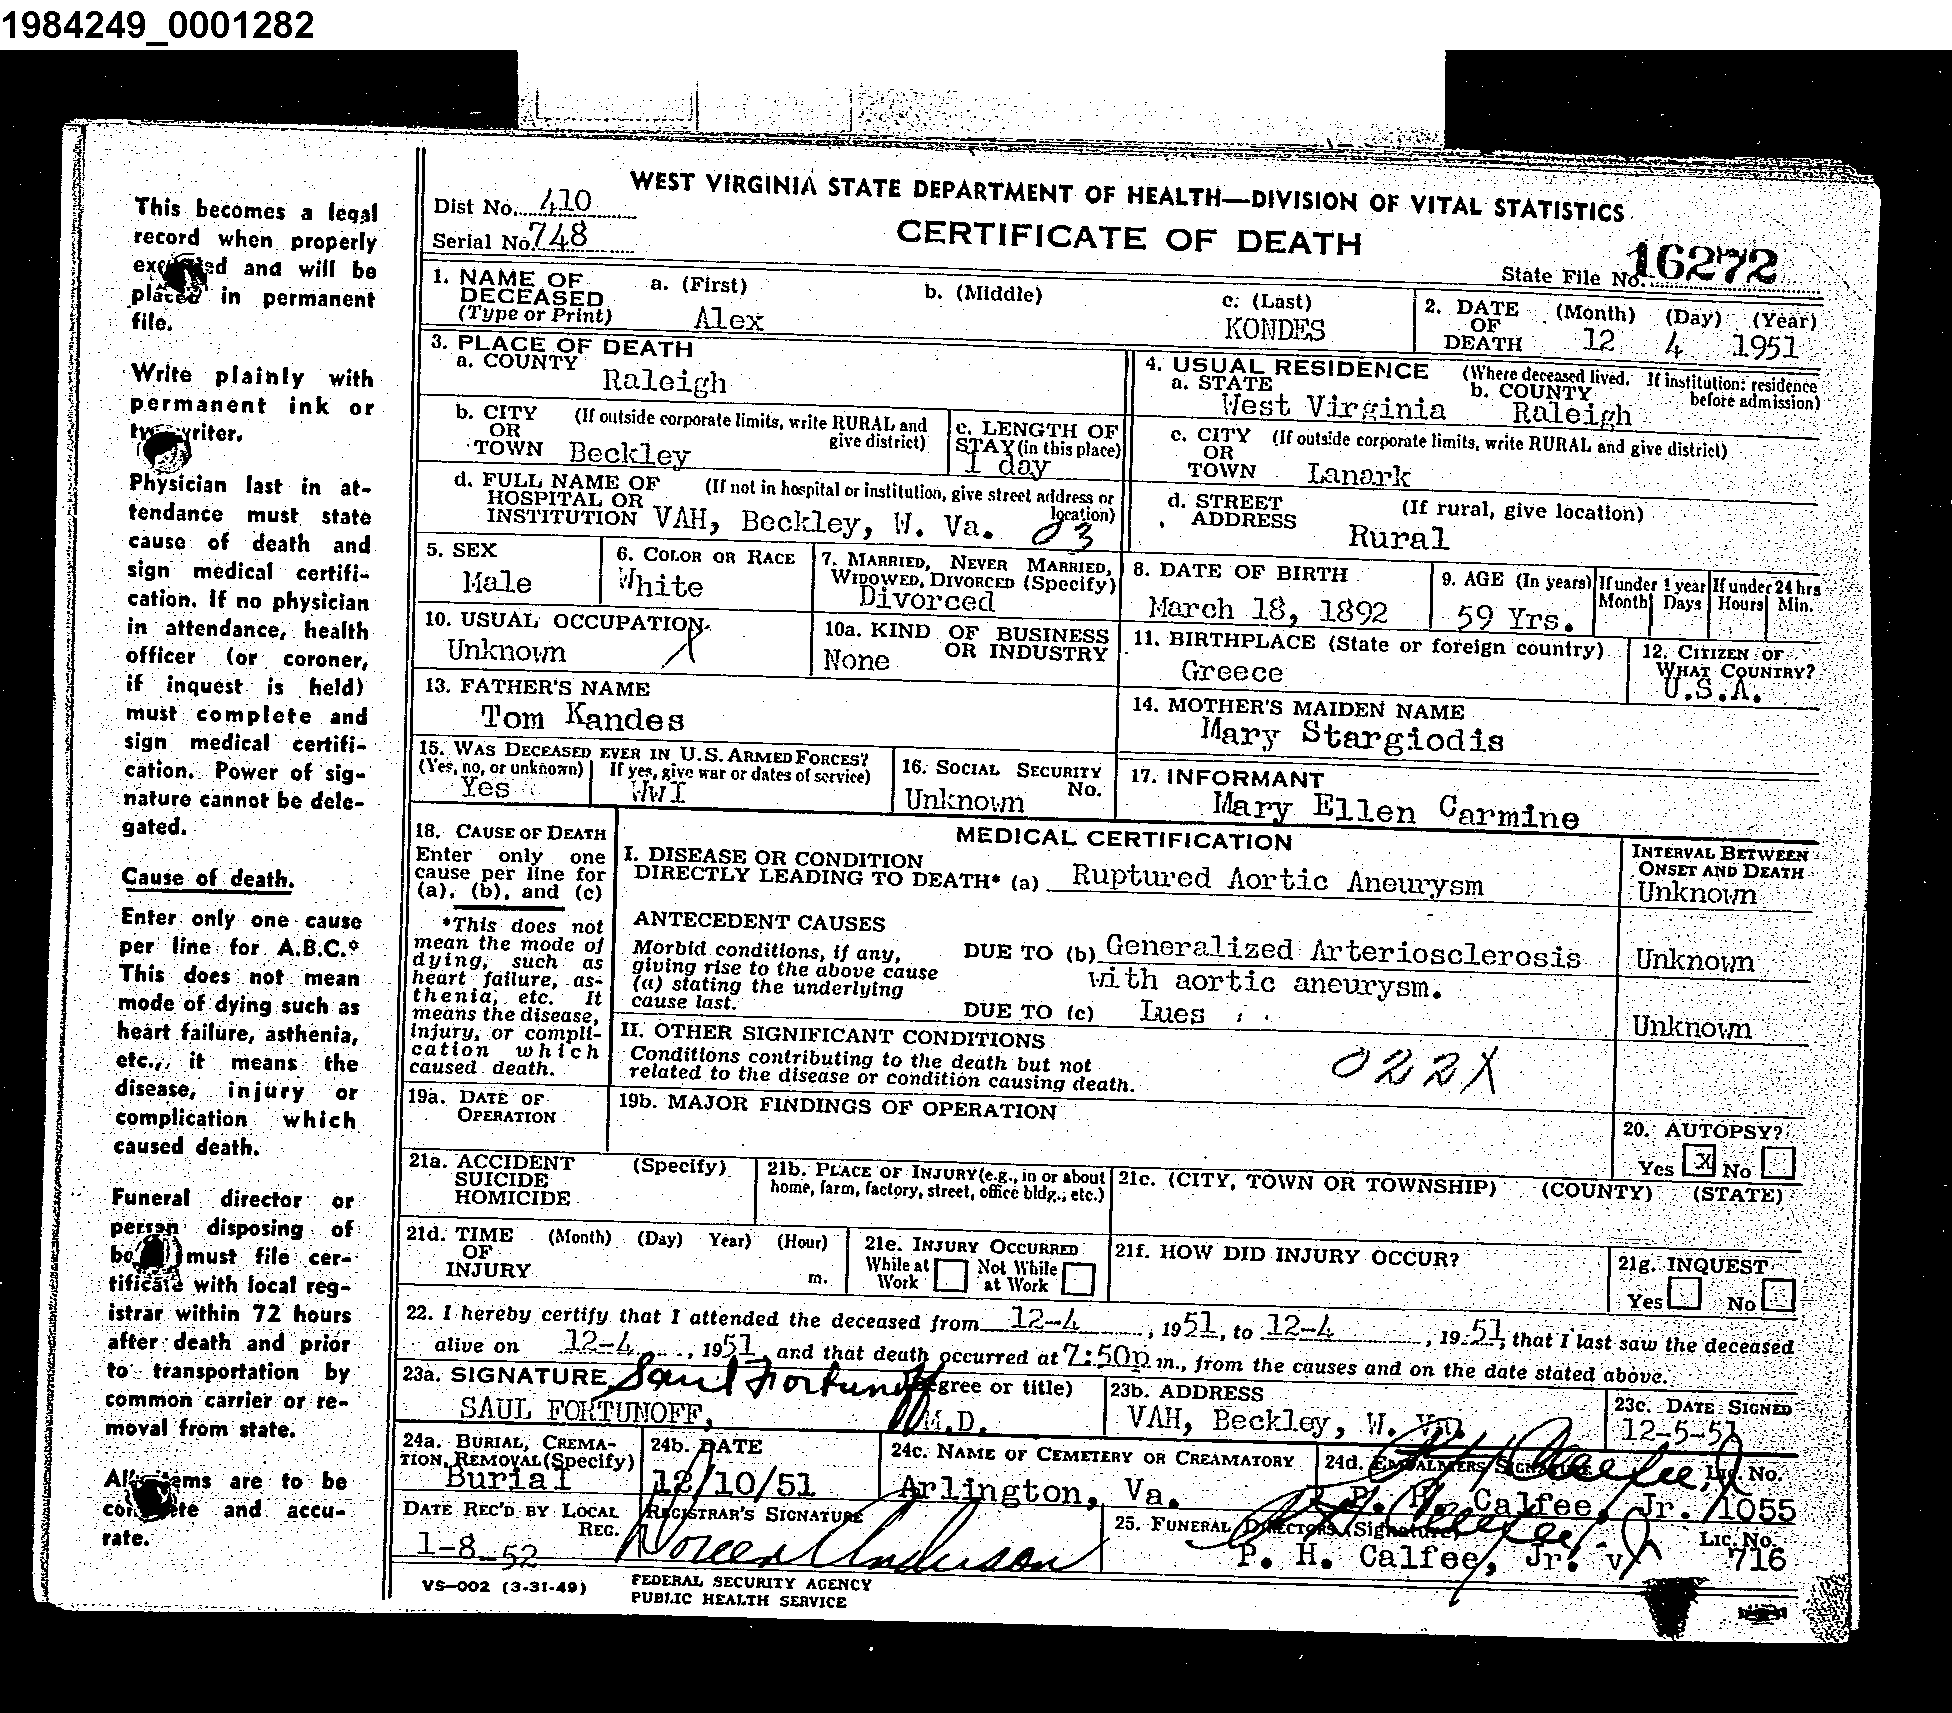 1984249_0001282
This becomes a legal
record when properly
and will be
placed in permanent
file.
Write plainly with
permanent ink or
Physician last in at-
tendance must state
cause of death and
sign medical certifi-
cation. If no physician
in attendance, health
officer (or coroner,
if inquest is held)
must complete and
sign medical certifi-
cation. Power of sig-
nature cannot be dele-
gated.
Cause of death.
Enter only one cause
per line for A.B.C.*
This does not mean
mode of dying such as
heart failure, asthenia,
etc., it means the
disease, injury or
complication which
caused death.
Funeral director or
person disposing of
must file cer-
tificate with local reg-
istrar within 72 hours
after death and prior
to transportation by
common carrier or re-
moval from state.
are to be
and accu-
rate.
WEST VIRGINIA STATE DEPARTMENT OF HEALTH—DIVISION OF VITAL STATISTICS
Dist No. 410
CERTIFICATE OF DEATH
Serial No. 748
State File No. 16272
1. NAME OF DECEASED (Type or Print) a. (First) b. (Middle) c. (Last)
Alex KONDES
2. DATE OF DEATH (Month) (Day) (Year)
12 4 1951
3. PLACE OF DEATH
a. COUNTY Raleigh
4. USUAL RESIDENCE (Where deceased lived. If institution: residence before admission)
a. STATE West Virginia b. COUNTY Raleigh
b. CITY OR TOWN (If outside corporate limits, write RURAL and give district)
Beckley
c. LENGTH OF STAY (in this place)
1 day
c. CITY OR TOWN (If outside corporate limits, write RURAL and give district)
Lanark
d. FULL NAME OF HOSPITAL OR INSTITUTION (If not in hospital or institution, give street address or location)
VAH, Beckley, W. Va. 03
d. STREET ADDRESS (If rural, give location)
Rural
5. SEX
Male
6. COLOR OR RACE
White
7. MARRIED, NEVER MARRIED, WIDOWED, DIVORCED (Specify)
Divorced
8. DATE OF BIRTH
March 18, 1892
9. AGE (In years) If under 1 year If under 24 hrs
Month Days Hours Min.
59 Yrs.
10. USUAL OCCUPATION
Unknown X
10a. KIND OF BUSINESS OR INDUSTRY
None
11. BIRTHPLACE (State or foreign country)
Greece
12. CITIZEN OF WHAT COUNTRY?
U.S.A.
13. FATHER'S NAME
Tom Kandes
14. MOTHER'S MAIDEN NAME
Mary Stargiodis
15. WAS DECEASED EVER IN U.S. ARMED FORCES?
(Yes, no, or unknown) If yes, give war or dates of service)
Yes WWI
16. SOCIAL SECURITY No.
Unknown
17. INFORMANT
Mary Ellen Carmine
18. CAUSE OF DEATH
Enter only one
cause per line for
(a), (b), and (c)
*This does not
mean the mode of
dying, such as
heart failure, as-
thenia, etc. It
means the disease,
injury, or compli-
cation which
caused death.
MEDICAL CERTIFICATION
INTERVAL BETWEEN ONSET AND DEATH
I. DISEASE OR CONDITION
DIRECTLY LEADING TO DEATH* (a) Ruptured Aortic Aneurysm Unknown
ANTECEDENT CAUSES
Morbid conditions, if any,
giving rise to the above cause
(a) stating the underlying
cause last.
DUE TO (b) Generalized Arteriosclerosis Unknown
with aortic aneurysm.
DUE TO (c) Lues Unknown
II. OTHER SIGNIFICANT CONDITIONS
Conditions contributing to the death but not
related to the disease or condition causing death.
022X
19a. DATE OF OPERATION
19b. MAJOR FINDINGS OF OPERATION
20. AUTOPSY?
Yes X No
21a. ACCIDENT SUICIDE HOMICIDE (Specify)
21b. PLACE OF INJURY (e.g., in or about home, farm, factory, street, office bldg., etc.)
21c. (CITY, TOWN OR TOWNSHIP) (COUNTY) (STATE)
21d. TIME OF INJURY (Month) (Day) Year) (Hour) m.
21e. INJURY OCCURRED
While at Work Not While at Work
21f. HOW DID INJURY OCCUR?
21g. INQUEST
Yes No
22. I hereby certify that I attended the deceased from 12-4, 1951, to 12-4, 1951, that I last saw the deceased
alive on 12-4, 1951, and that death occurred at 7:50p m., from the causes and on the date stated above.
23a. SIGNATURE Saul Fortunoff (Degree or title)
SAUL FORTUNOFF, M.D.
23b. ADDRESS
VAH, Beckley, W. Va.
23c. DATE SIGNED
12-5-51
24a. BURIAL, CREMATION, REMOVAL (Specify)
Burial
24b. DATE
12/10/51
24c. NAME OF CEMETERY OR CREAMATORY
Arlington, Va.
24d. EMBALMERS SIGNATURE Lic. No.
P. H. Calfee, Jr. 1055
DATE REC'D BY LOCAL REG.
1-8-52
REGISTRAR'S SIGNATURE
Noreen Anderson
25. FUNERAL DIRECTORS (Signature) Lic. No.
P. H. Calfee, Jr. 716
VS—002 (3-31-49)
FEDERAL SECURITY AGENCY
PUBLIC HEALTH SERVICE